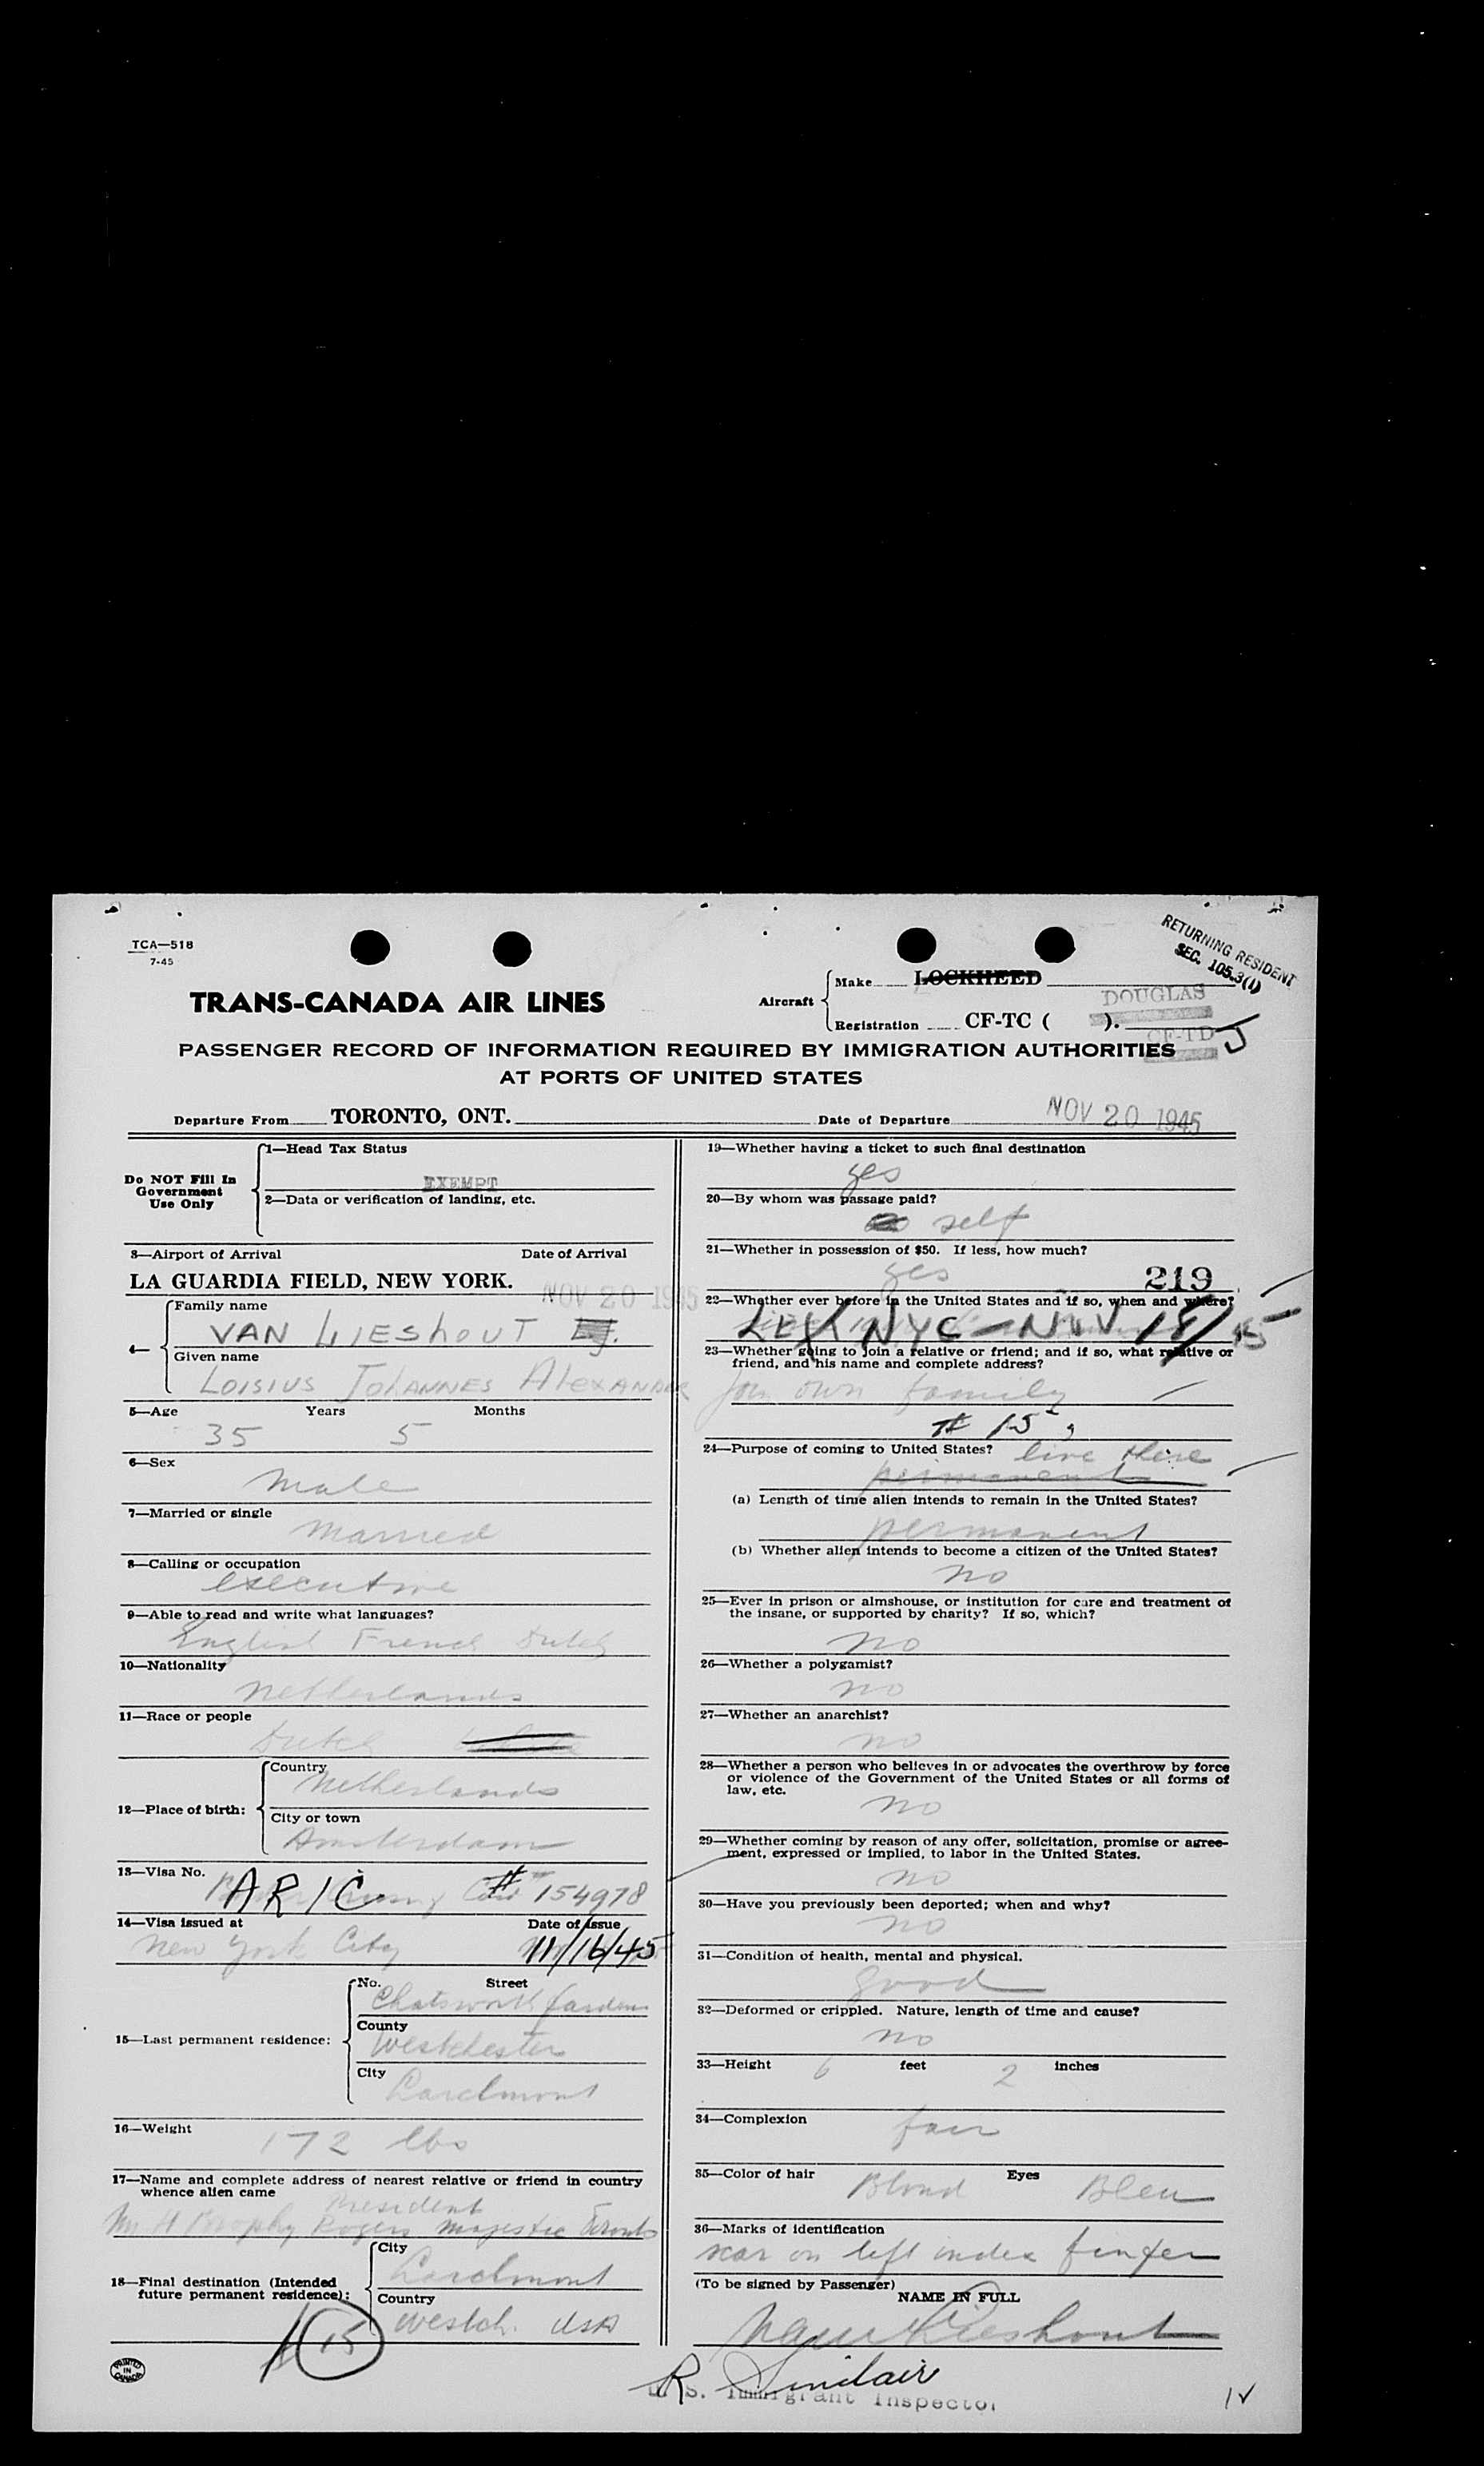 TCA—518
7-45
RETURNING RESIDENT
SEC. 105.3(1)
TRANS-CANADA AIR LINES
Aircraft
Make LOCKHEED
DOUGLAS
Registration CF-TC ( ).
CF-TD J
PASSENGER RECORD OF INFORMATION REQUIRED BY IMMIGRATION AUTHORITIES
AT PORTS OF UNITED STATES
Departure From TORONTO, ONT. Date of Departure NOV 20 1945
Do NOT Fill In
Government
Use Only
1—Head Tax Status
EXEMPT
2—Data or verification of landing, etc.
3—Airport of Arrival Date of Arrival
LA GUARDIA FIELD, NEW YORK. NOV 20 1945
4—
Family name
VAN LIESHOUT
Given name
LOISIUS JOHANNES ALEXANDER
5—Age Years Months
35 5
6—Sex
male
7—Married or single
married
8—Calling or occupation
executive
9—Able to read and write what languages?
English French Dutch
10—Nationality
Netherlands
11—Race or people
Dutch
12—Place of birth:
Country
Netherlands
City or town
Amsterdam
13—Visa No.
AR/C # 154978
14—Visa issued at Date of issue
New York City 11/16/45
15—Last permanent residence:
No. Street
Chatsworth Gardens
County
Westchester
City
Larchmont
16—Weight
172 lbs
17—Name and complete address of nearest relative or friend in country
whence alien came
President
Mr H Brophy Rogers Majestic Toronto
18—Final destination (Intended
future permanent residence):
City
Larchmont
Country
Westch. USA
15
PRINTED
IN
CANADA
19—Whether having a ticket to such final destination
yes
20—By whom was passage paid?
self
21—Whether in possession of $50. If less, how much?
yes
219
22—Whether ever before in the United States and if so, when and where?
LEX NYC — NOV 18/45
23—Whether going to join a relative or friend; and if so, what relative or
friend, and his name and complete address?
join own family
# 15
24—Purpose of coming to United States? live there
permanent
(a) Length of time alien intends to remain in the United States?
permanent
(b) Whether alien intends to become a citizen of the United States?
no
25—Ever in prison or almshouse, or institution for care and treatment of
the insane, or supported by charity? If so, which?
no
26—Whether a polygamist?
no
27—Whether an anarchist?
no
28—Whether a person who believes in or advocates the overthrow by force
or violence of the Government of the United States or all forms of
law, etc.
no
29—Whether coming by reason of any offer, solicitation, promise or agree-
ment, expressed or implied, to labor in the United States.
no
30—Have you previously been deported; when and why?
no
31—Condition of health, mental and physical.
good
32—Deformed or crippled. Nature, length of time and cause?
no
33—Height 6 feet 2 inches
34—Complexion fair
35—Color of hair Blond Eyes Bleu
36—Marks of identification
scar on left index finger
(To be signed by Passenger)
NAME IN FULL
R Sinclair
U. S. Immigrant Inspector